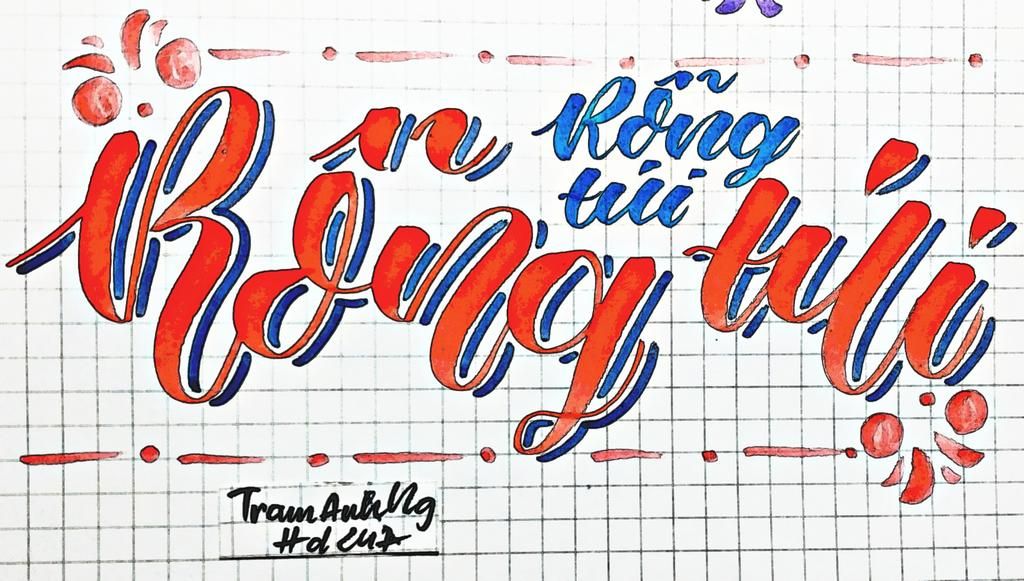 Rỗng
túi
Rỗng túi
TramAnhNg